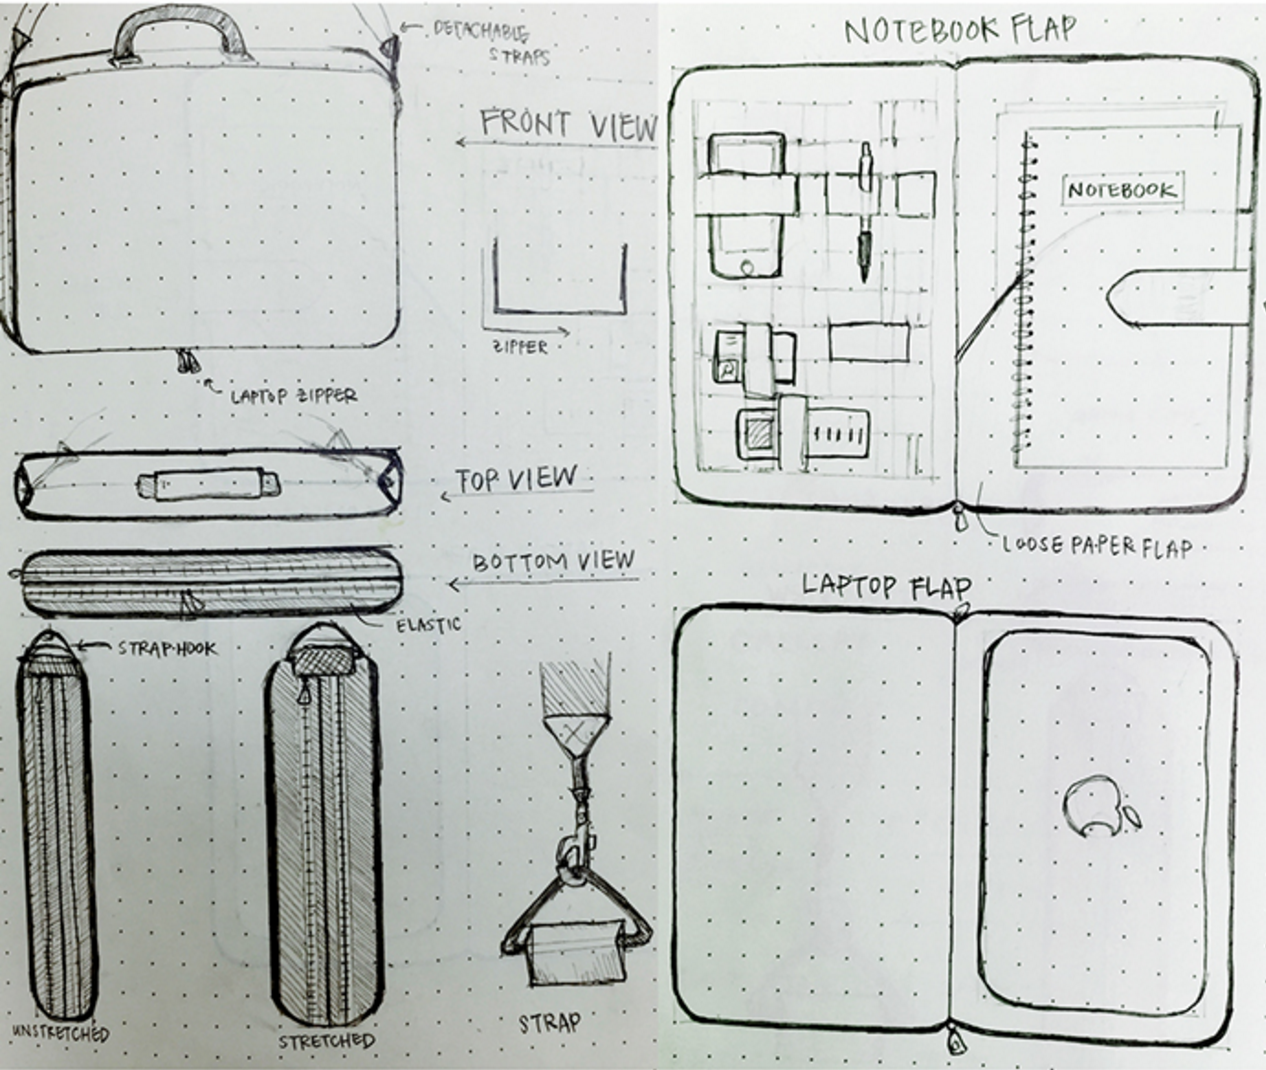 DETACHABLE
STRAPS
FRONT VIEW
ZIPPER
LAPTOP ZIPPER
TOP VIEW
BOTTOM VIEW
ELASTIC
STRAP-HOOK
UNSTRETCHED
STRETCHED
STRAP
NOTEBOOK FLAP
NOTEBOOK
LOOSE PAPER FLAP
LAPTOP FLAP